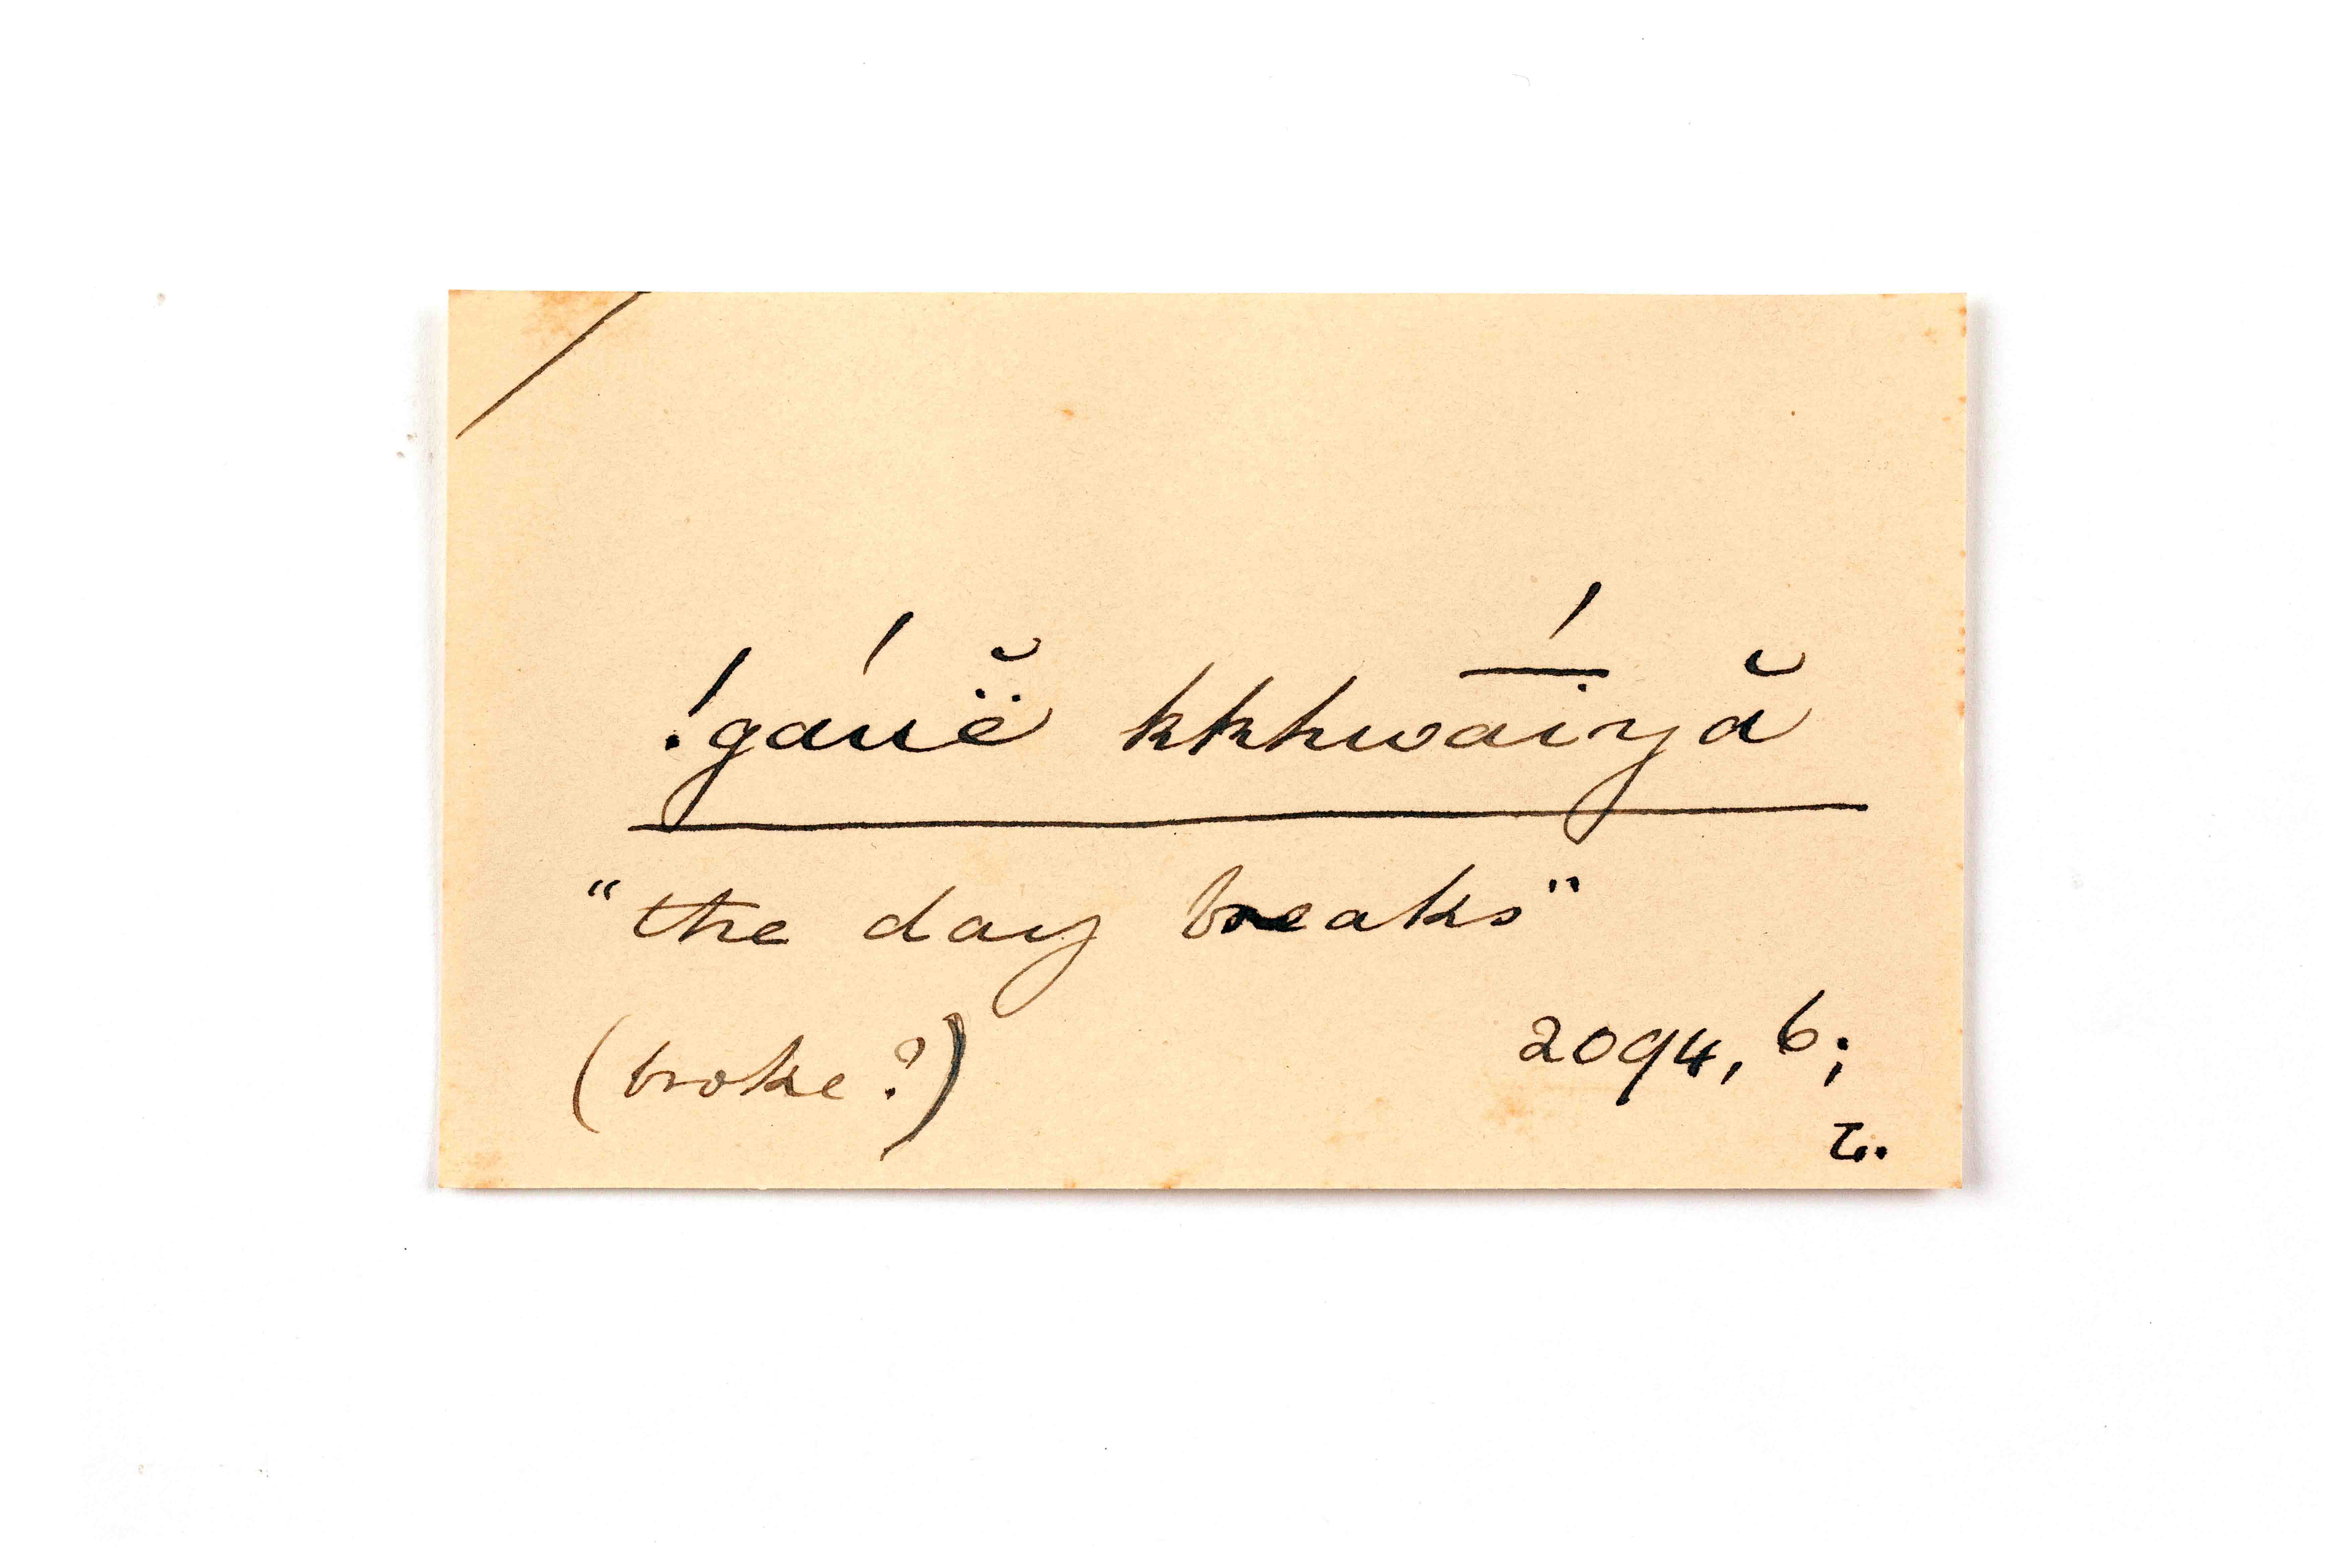 !gáuë̆ kkhwā́īyă
"the day breaks"
(broke?)
2094, 6;